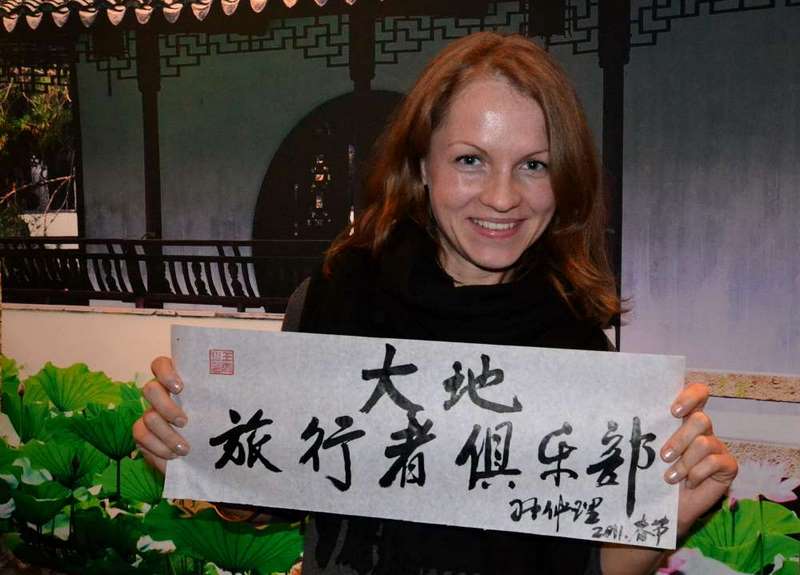 大地
旅行者俱乐部
2011.春节